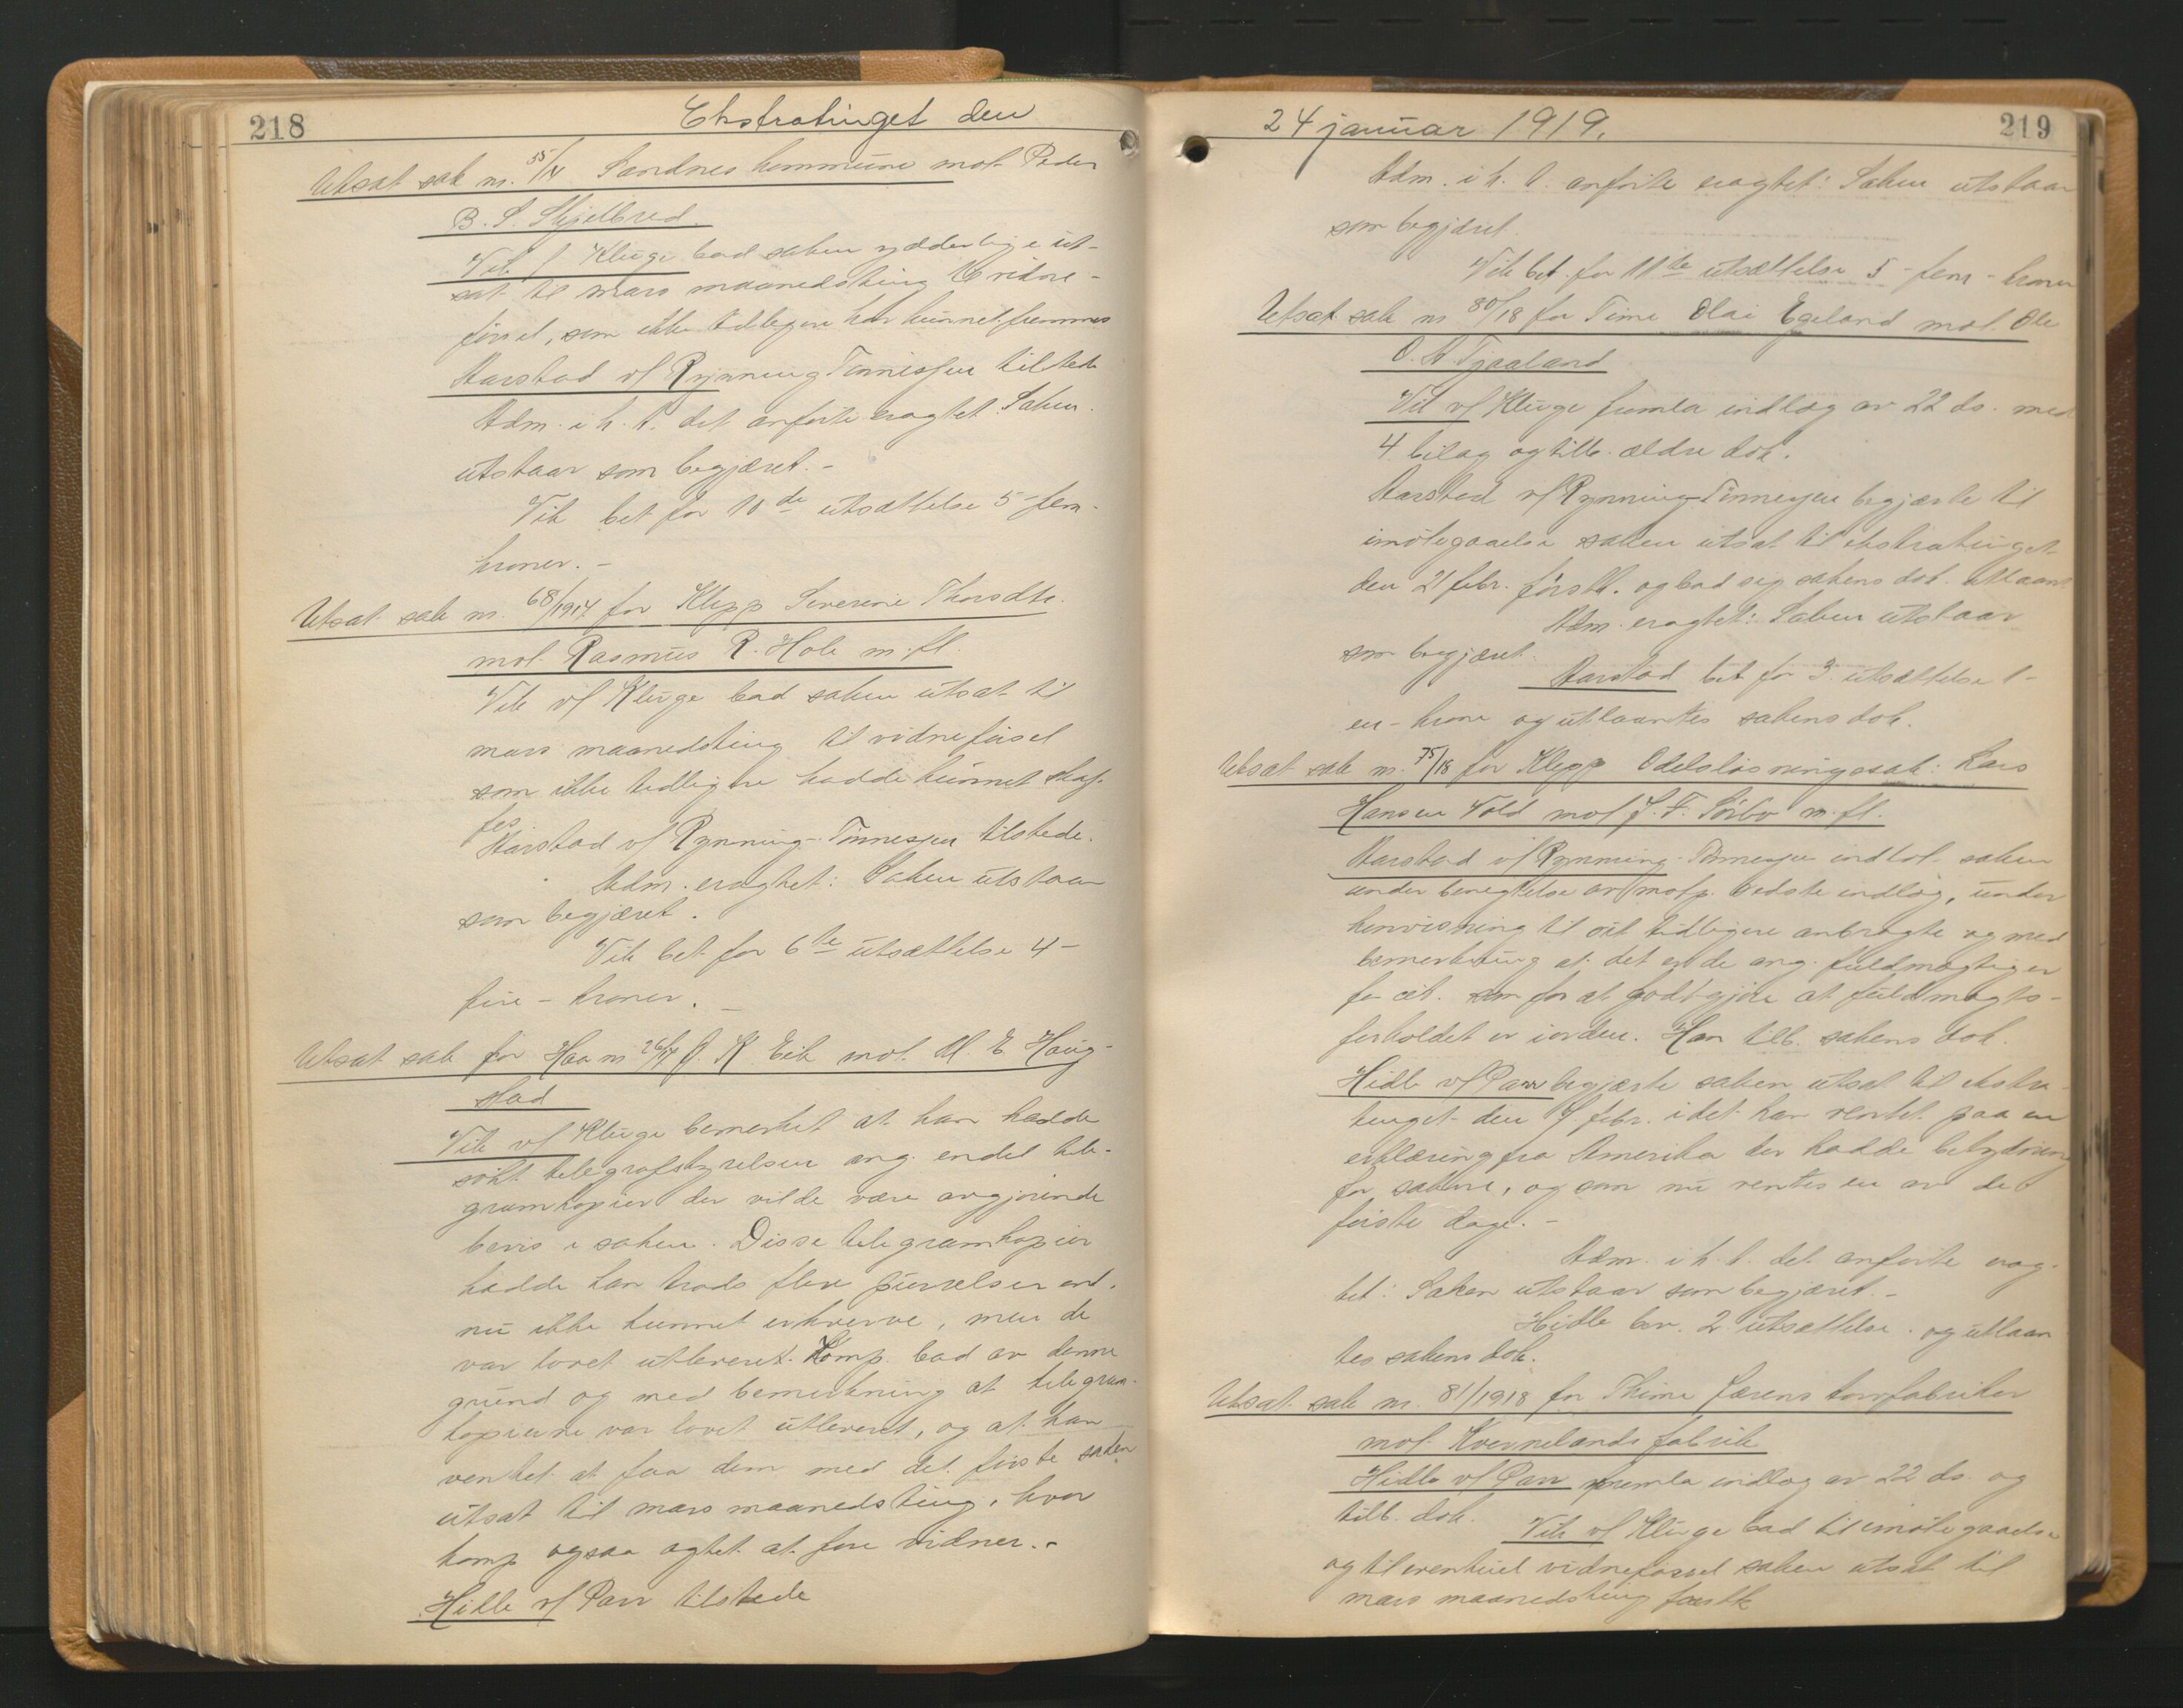 218
Ekstratinget den
Utsat sak nr. 55/14 Sandnes kommune mot Peder
B. S. Skjelbred.
Vik f Kluge bad saken ydderligere ut-
sat til mars maanedsting til vidne-
førsel, som ikke tidligere har kunnet fremmes
Aarstad v/ Rynning Tønnesen tilstede
Adm. i h. t. det anførte eragtet: Saken
utstaar som begjæret. -
Vik bet for 10de utsættelse 5 - fem -
kroner. -
Utsat sak nr. 68/1917 for Klepp Severine Thorsdtr.
mot Rasmus R. Hole m. fl.
Vik v/ Kluge bad saken utsat til
mars maanedsting til vidneførsel
som ikke tidligere hadde kunnet skaf-
fes
Aarstad v/ Rynning-Tønnesen tilstede.
Adm. eragtet: Saken utstaar
som begjæret.
Vik bet for 6te utsættelse 4 -
fire - kroner. -
Utsat sak for Haa nr 26/17 J. K. Eik mot M. E. Haug-
stad
Vik v/ Kluge bemerket at han hadde
søkt telegrafstyrelsen ang. endel tele-
gramkopier der vilde være avgjørende
bevis i saken. Disse telegramkopier
hadde han trods flere purrelser end-
nu ikke kunnet erhverve, men de
var lovet utleveret. Komp. bad av denne
grund og med bemerkning at telegram-
kopierne var lovet utleveret, og at han
ventet at faa dem med det første saken
utsat til mars maanedsting, hvor
komp ogsaa agtet at føre vidner. -
Hidle v/ Parr tilstede
24 januar 1919.
219
Adm. i h. t. anførte eragtet: Saken utstaar
som begjæret.
Vik bet. for 11te utsættelse 5 - fem - kroner
Utsat sak nr 80/18 for Time Olai Egeland mot Ole
O. A. Tjaaland
Vik v/ Kluge fremla indlæg av 22 ds. med
4 bilag og tilb. ældre dok.
Aarstad v/ Rynning-Tønnesen begjærte til
imøtegaaelse saken utsat til ekstratinget
den 21 febr. førstk. og bad sig sakens dok. utlaant
Adm. eragtet: Saken utstaar
som begjæret.
Aarstad bet for 3 utsættelse 1 -
en - krone og utlaantes sakens dok.
Utsat sak nr. 75/18 for Klepp Odelsløsningssak: Lars
Hansen Vold mot J. F. Sørbø m. fl.
Aarstad v/ Rynning-Tønnesen indtok saken
under benegtelse av motp. sidste indlæg, under
henvisning til sit tidligere anbragte og med
bemerkning at det er de ang. fuldmægtiger
for cit. som for at godtgjøre at fuldmagts-
forholdet er iorden. Han tilb. sakens dok.
Hidle v/ Parr begjærte saken utsat til ekstra-
tinget den 7. febr. idet han ventet paa en
erklæring fra Amerika der hadde betydning
for sakene, og som nu ventes en av de
første dage. -
Adm. i h. t. det anførte erag-
tet: Saken utstaar som begjæret. -
Hidle bev. 2 utsættelse og utlaan-
tes sakens dok.
Utsat sak nr. 81/1918 for Thime Jærens torvfabriker
mot Kvernelands fabrik
Hidle v/ Parr fremla indlæg av 22 ds. og
tilb. dok.
Vik v/ Kluge bad til imøtegaaelse
og til eventuel vidneførsel saken utsat til
mars maanedsting førstk